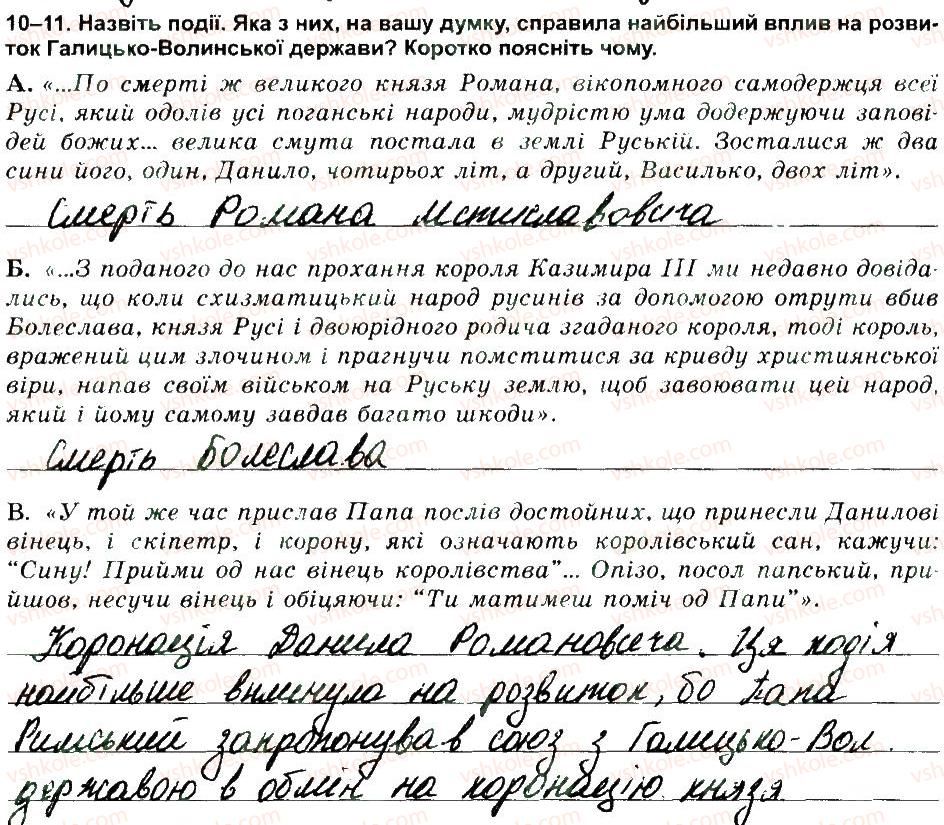 10–11. Назвіть події. Яка з них, на вашу думку, справила найбільший вплив на розви-
ток Галицько-Волинської держави? Коротко поясніть чому.
А. «...По смерті ж великого князя Романа, вікопомного самодержця всеї
Русі, який одолів усі поганські народи, мудрістю ума додержуючи запові-
дей божих... велика смута постала в землі Руській. Зосталися ж два
сини його, один, Данило, чотирьох літ, а другий, Василько, двох літ».
Смерть Романа Мстиславовича
Б. «...З поданого до нас прохання короля Казимира III ми недавно довіда-
лись, що коли схизматицький народ русинів за допомогою отрути вбив
Болеслава, князя Русі і двоюрідного родича згаданого короля, тоді король,
вражений цим злочином і прагнучи помститися за кривду християнської
віри, напав своїм військом на Руську землю, щоб завоювати цей народ,
який і йому самому завдав багато шкоди».
Смерть Болеслава
В. «У той же час прислав Папа послів достойних, що принесли Данилові
вінець, і скіпетр, і корону, які означають королівський сан, кажучи:
"Сину! Прийми од нас вінець королівства"... Опізо, посол папський, при-
йшов, несучи вінець і обіцяючи: "Ти матимеш поміч од Папи"».
Коронація Данила Романовича. Ця подія
найбільше вплинула на розвиток, бо Папа
Римський запропонував союз з Галицько-Вол.
державою в обмін на коронацію князя